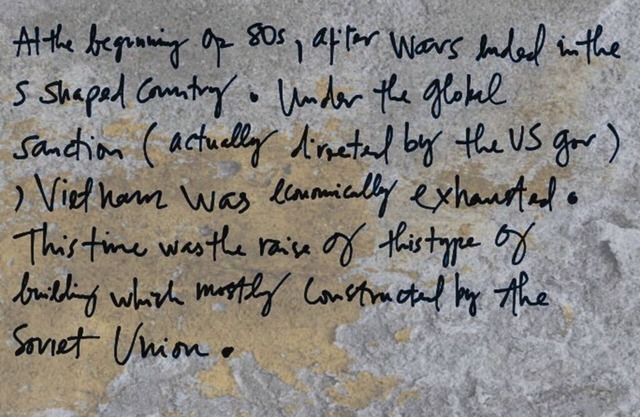 At the beginning of 80s, after Wars ended in the
S shaped Country. Under the global
sanction (actually directed by the US gov)
, Vietnam was economically exhausted.
This time was the raise of this type of
building which mostly constructed by the
Soviet Union.